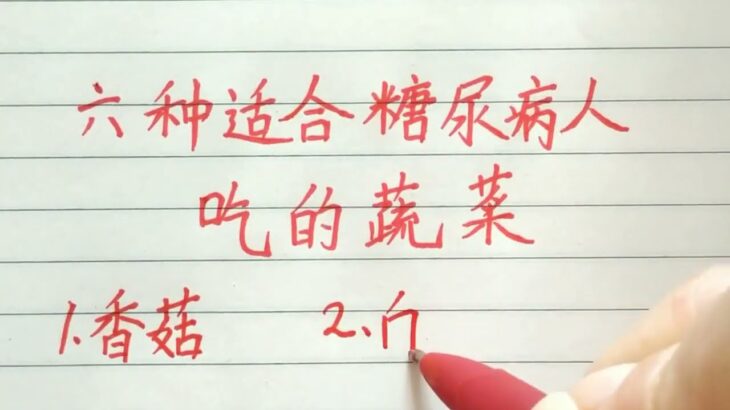 六种适合糖尿病人
吃的蔬菜
1.香菇 2.